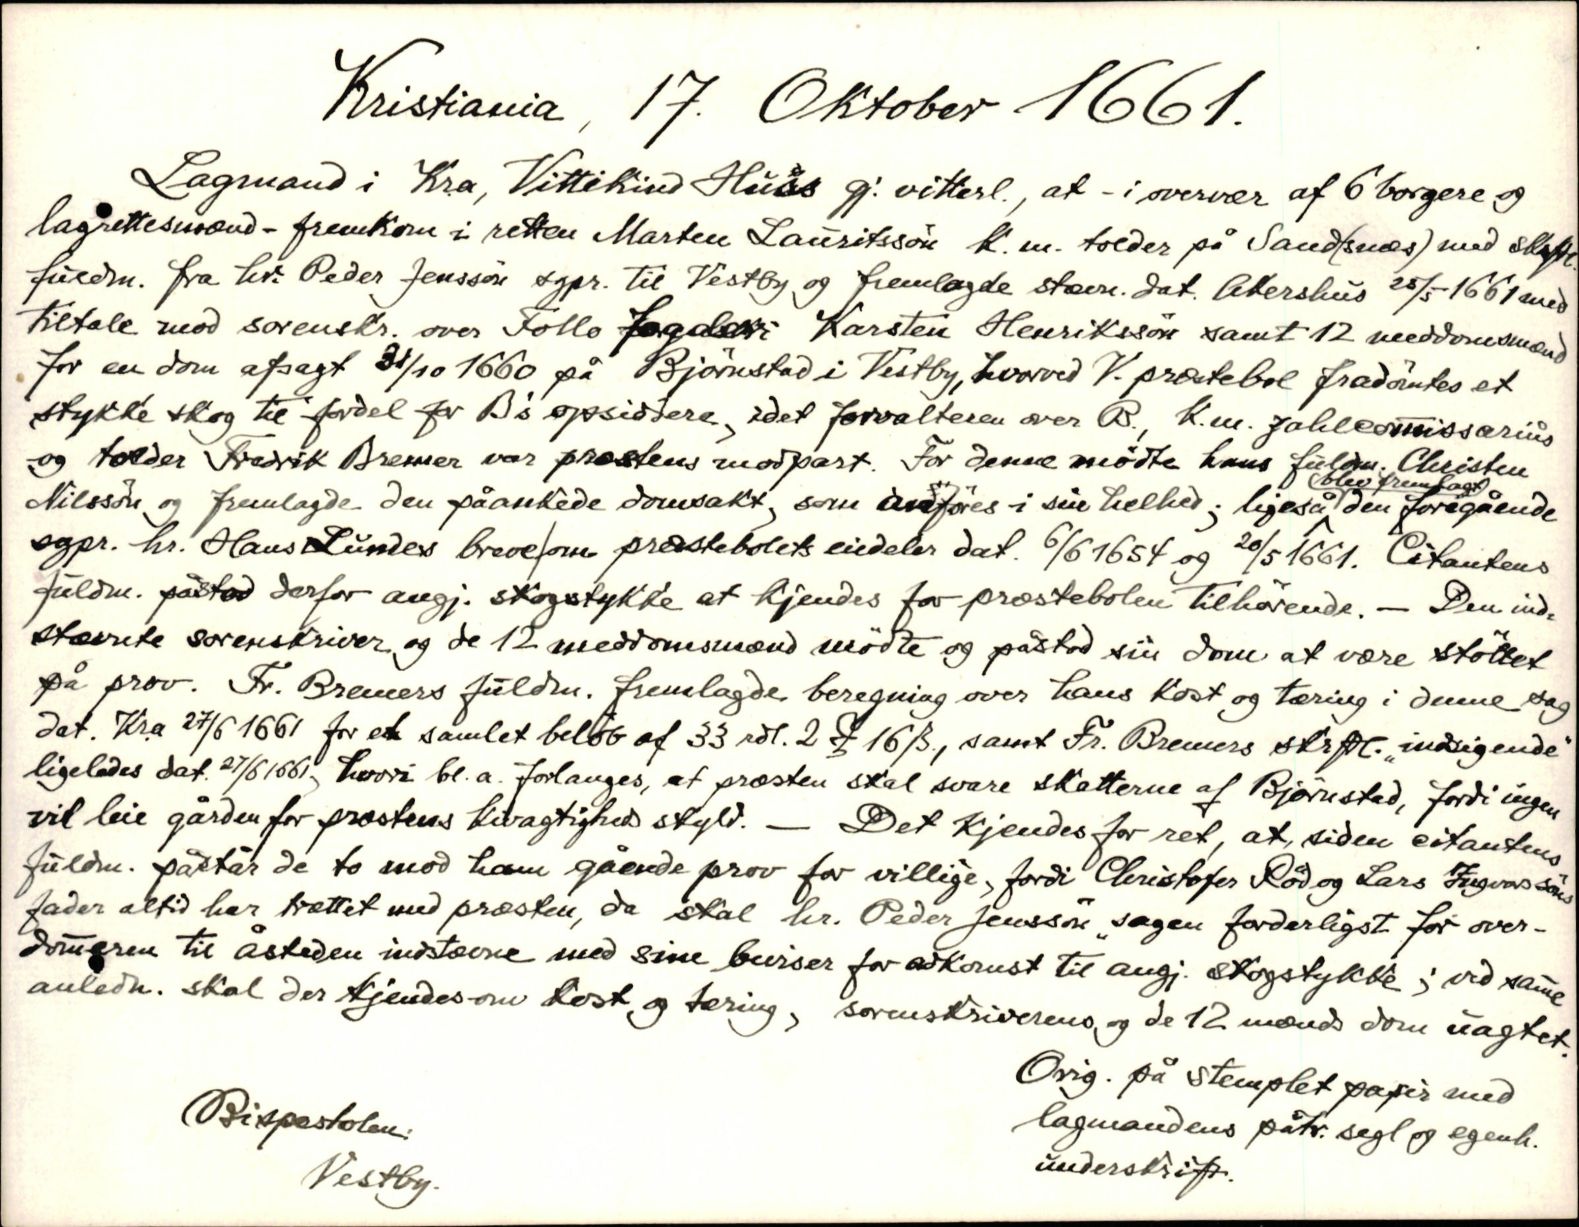 Kristiania, 17. Oktober 1661.
Lagmand i Kra, Vittikind Huss gj. vitterl., at - i overvær af 6 borgere og
lagrettesmænd - fremkom i retten Marten Lauritssön k. m. tolder på Sand(snæs) med skrftl.
fuldm. fra hr. Peder Jenssön sgpr. til Vestby og fremlagde stævn. dat. Akershus 25/5 1661 med
tiltale mod sorenskr. over Follo fogderi Karsten Henrikssön samt 12 meddomsmænd
for en dom afsagt 31/10 1660 på Björnstad i Vestby, hvorved V. præstebol fradömtes et
stykke skog til fordel for B's opsiddere, idet forvalteren over B., k. m. zahlcom̄issarius
og tolder Fredrik Bremer var præstens modpart. For denne mödte hans fuldm. Christen
Nilssön og fremlagde den påankede domsakt, som anföres i sin helhed; ligeså (blev fremlagt) den foregående
sgpr. hr. Hans Lundes breve om præstebolets eiendeler dat. 6/6 1654 og 20/5 1661. Citantens
fuldm. påstod derfor angj. skogstykke at kjendes for præstebolen tilhörende. — Den ind-
stævnte sorenskriver og de 12 meddomsmænd mödte og påstod sin dom at være stöttet
på prov. Fr. Bremers fuldm. fremlagde beregning over hans kost og tæring i denne sag
dat. Kra 27/6 1661 for et samlet belöb af 33 rdl. 2 ₰ 16 ß., samt Fr. Bremers skrftl. "indsigende"
ligeledes dat. 27/6 1661, hvori bl. a. forlanges, at præsten skal svare skatterne af Björnstad, fordi ingen
vil leie gården for præstens kivagtigheds skyld. — Det kjendes for ret, at, siden citantens
fuldm. påstår de to mod ham gående prov for villige, fordi Christofer Röd og Lars Ingvarssöns
fader altid har trættet med præsten, da skal hr. Peder Jenssön "sagen forderligst for over-
dom̄eren til åsteden indstævne med sine beviser for adkomst til angj. skogstykke; ved sam̄e
anledn. skal der kjendes om kost og tæring, sorenskriverens og de 12 mænds dom uagtet.
Orig. på stemplet papir med
lagmandens påtr. segl og egenh.
underskrift.
Bispestolen:
Vestby.